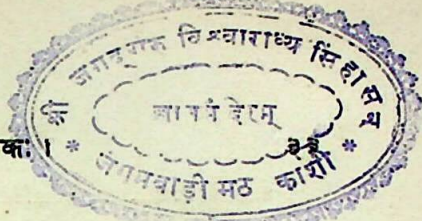 जगद्गुरु विश्वाराध्य सिंहासन
ज्ञानमंदिरम्
कः । *
*
जंगमवाड़ी मठ काशी